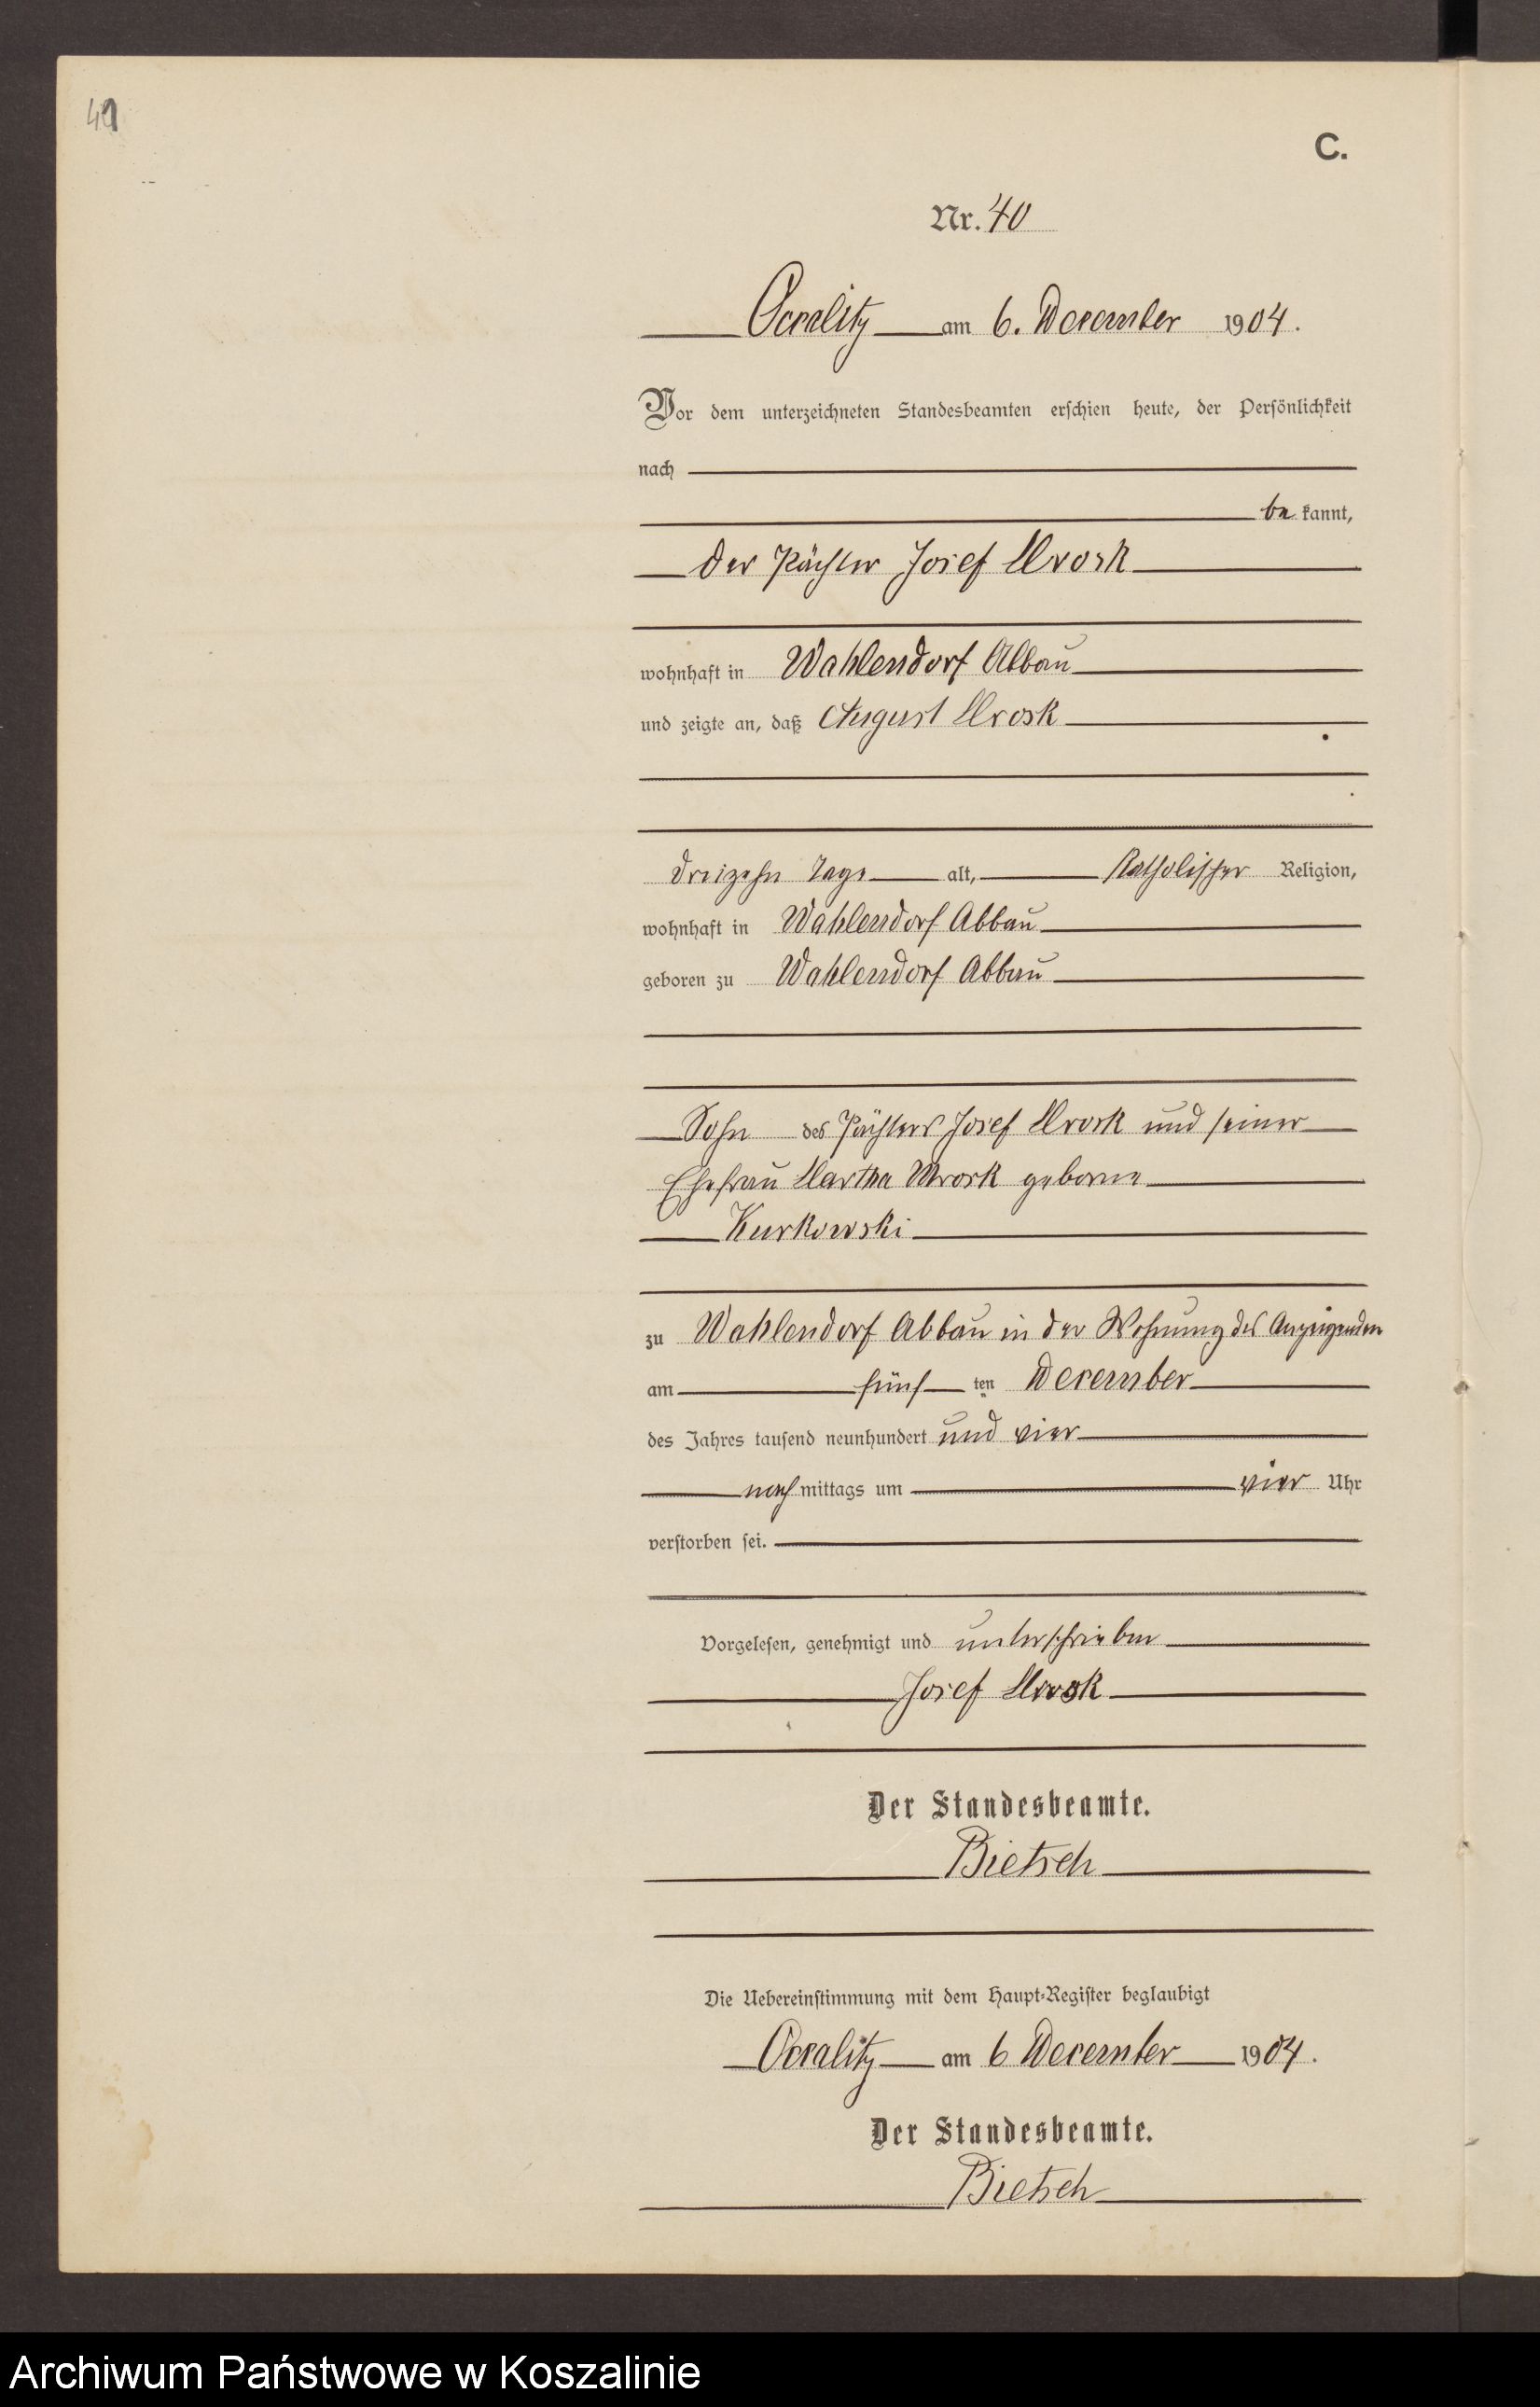 49
C.
Nr. 40
Occalitz am 6. December 1904.
Vor dem unterzeichneten Standesbeamten erschien heute, der Persönlichkeit
nach
be kannt,
der Pächter Josef Mrosk
wohnhaft in Wahlendorf Abbau
und zeigte an, daß August Mrosk
dreizehn Tage alt, katholischer Religion,
wohnhaft in Wahlendorf Abbau
geboren zu Wahlendorf Abbau
Sohn des Pächters Josef Mrosk und seiner
Ehefrau Martha Mrosk geborne
Kurkowski
zu Wahlendorf Abbau in der Wohnung des Anzeigenden
am fünf ten December
des Jahres tausend neunhundert und vier
nach mittags um vier Uhr
verstorben sei.
Vorgelesen, genehmigt und unterschrieben
Josef Mrosk
Der Standesbeamte.
Bietsch
Die Uebereinstimmung mit dem Haupt-Register beglaubigt
Occalitz am 6 December 1904.
Der Standesbeamte.
Bietsch
Archiwum Państwowe w Koszalinie